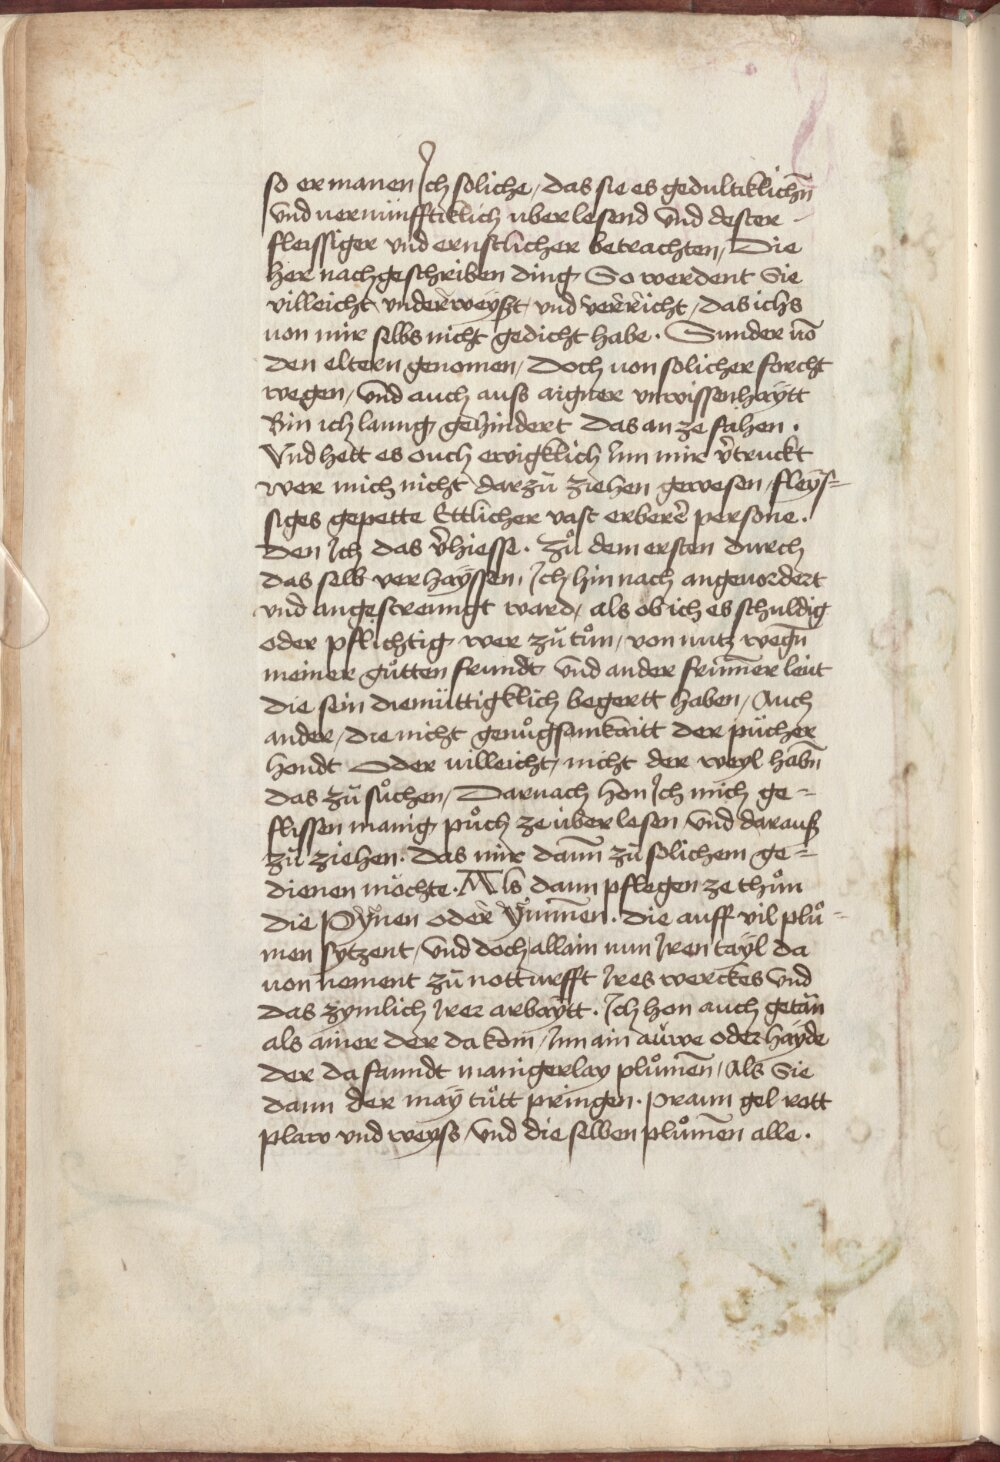 so ermanen Ich soliche / das sie es gedultiklichn̄
Vnd uernünfftiklich uberlesend Vnd dester
fleissiger vnd ernstlicher betrachten / Die
her nach geschriben ding So werdent Sie
villeicht vnderweyßt vnd verricht / das ichs
uon mir selbs nicht gedicht habe . Sunder uō
den eltern genomen / Doch uon solicher forcht
wegen / Vnd auch auss aigner vnwissenhaytt
Bin ich lanng gehindert das an ze fahen .
Vnd hett es ouch ewigklich Inn mir v̄truckt
wer mich nicht darzu ziehen gewesen / fleys=
siges gepette Ettlicher vast erberē persone .
Den Ich das v̄hiesse . Zů dem ersten durch
das selb verhayssen / Ich hin nach angeuordert
vnd angestrenngt ward / als ob ich es schuldig
oder pflichtig wer zů tůn / von nutz wegn̄
meiner gůtten frundt Vnd ander frum̄er leut
die sein diemüttigklich begertt haben / Auch
ander / die nicht genůgsamkaitt der pücher
hondt Oder uilleicht nicht der weyl habn̄
das zů sůchen / Darnach hon Ich mich ge=
flissen manig půch ze überlesen Vnd darauß
zů ziehen . das mir dann̄ zů solichem ge=
dienen möchte . Als dann pflegen ze thůn
die Pynen oder Ym̄men . die auff vil plů=
men sytzent / Vnd doch allain nun Iren tayl da
uon nement zů notturfft Ires werckes Vnd
das zymlich Irer arbaytt . Ich hon auch getān
als ainer der da kom / Inn ain auwe oder hayde
der da fanndt manigerlay plům̄en / Als Sie
dann der may tůtt pringen . Praun gel rott
plaw vnd weyss / Vnd die selben plům̄en alle .